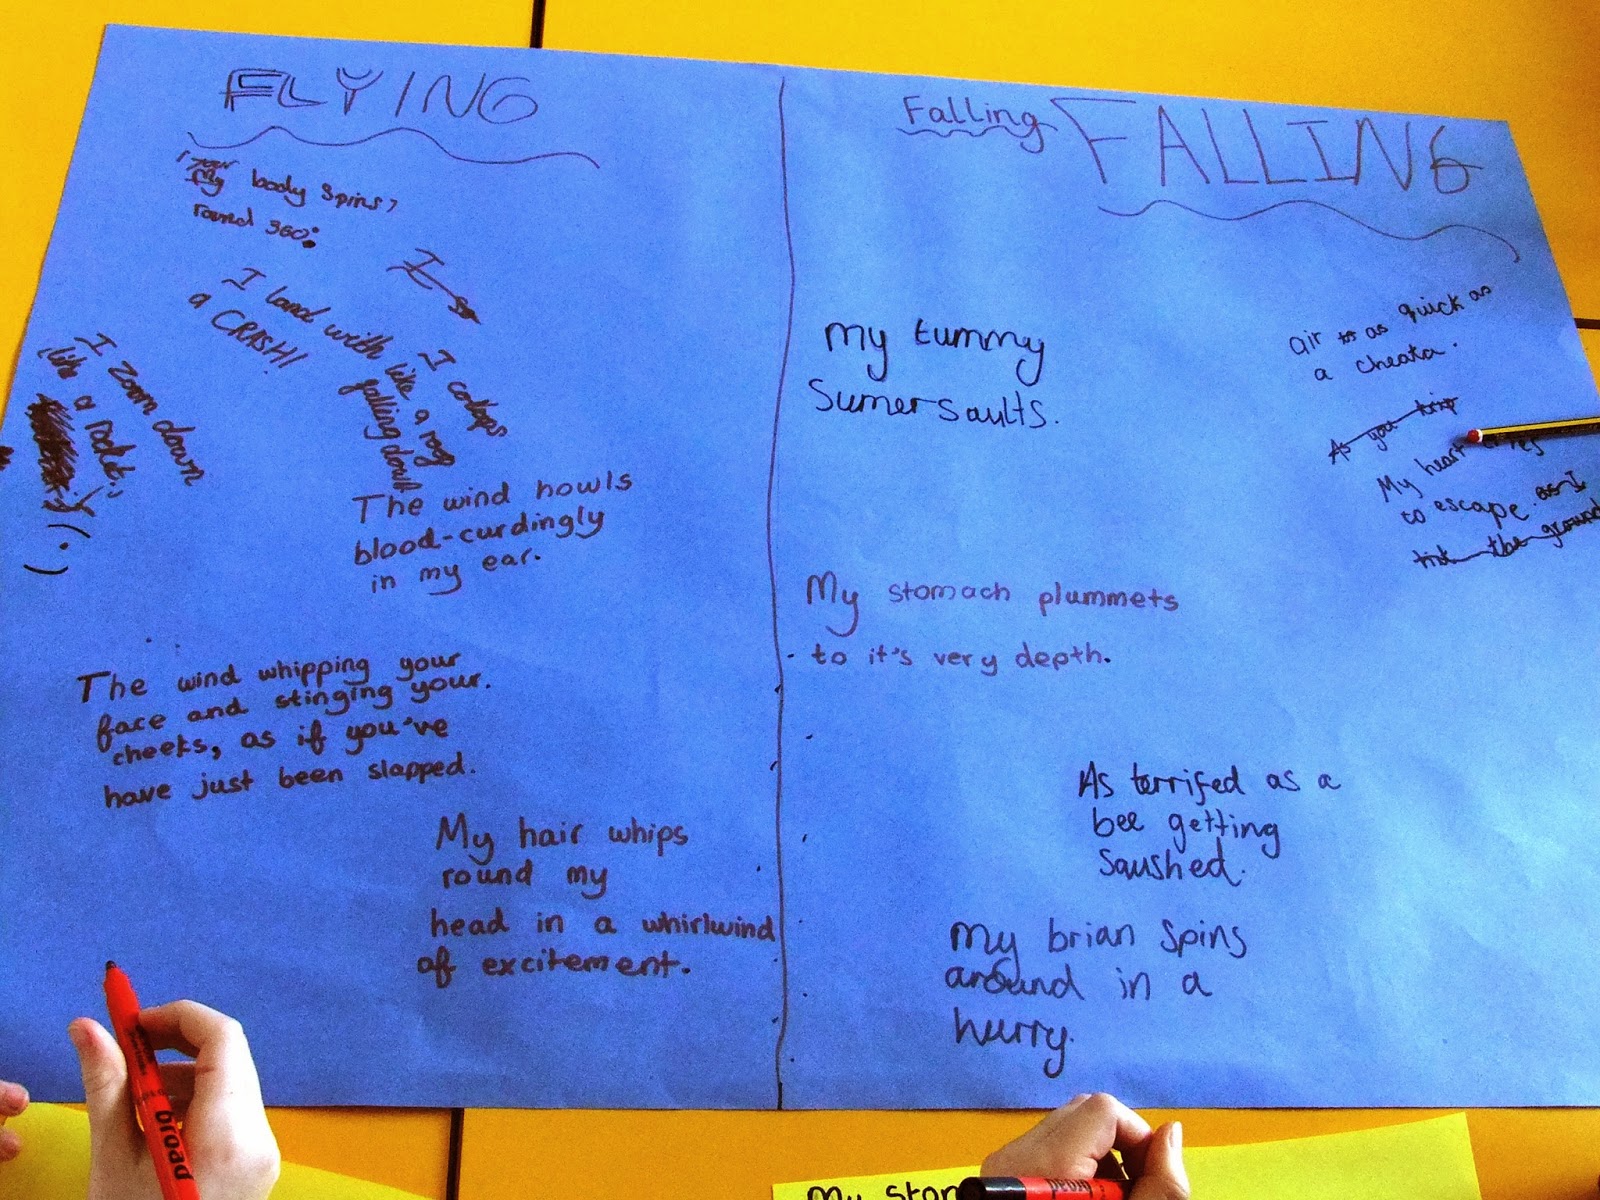 FLYING
My body spins,
round 360°.
I
I land with
a CRASH!
I zoom down
like a rocket.
I collaps
like a rag
falling down
The wind howls
blood-curdingly
in my ear.
The wind whipping your
face and stinging your
cheeks, as if you've
have just been slapped.
My hair whips
round my
head in a whirlwind
of excitement.
Falling
FALLING
My tummy
Sumersaults.
air is as quick as
a cheata.
As you trip
My heart tries
to escape as I
hit the ground
My stomach plummets
to it's very depth.
As terrifed as a
bee getting
saushed.
My brian spins
around in a
hurry.
broad
broad
My stom